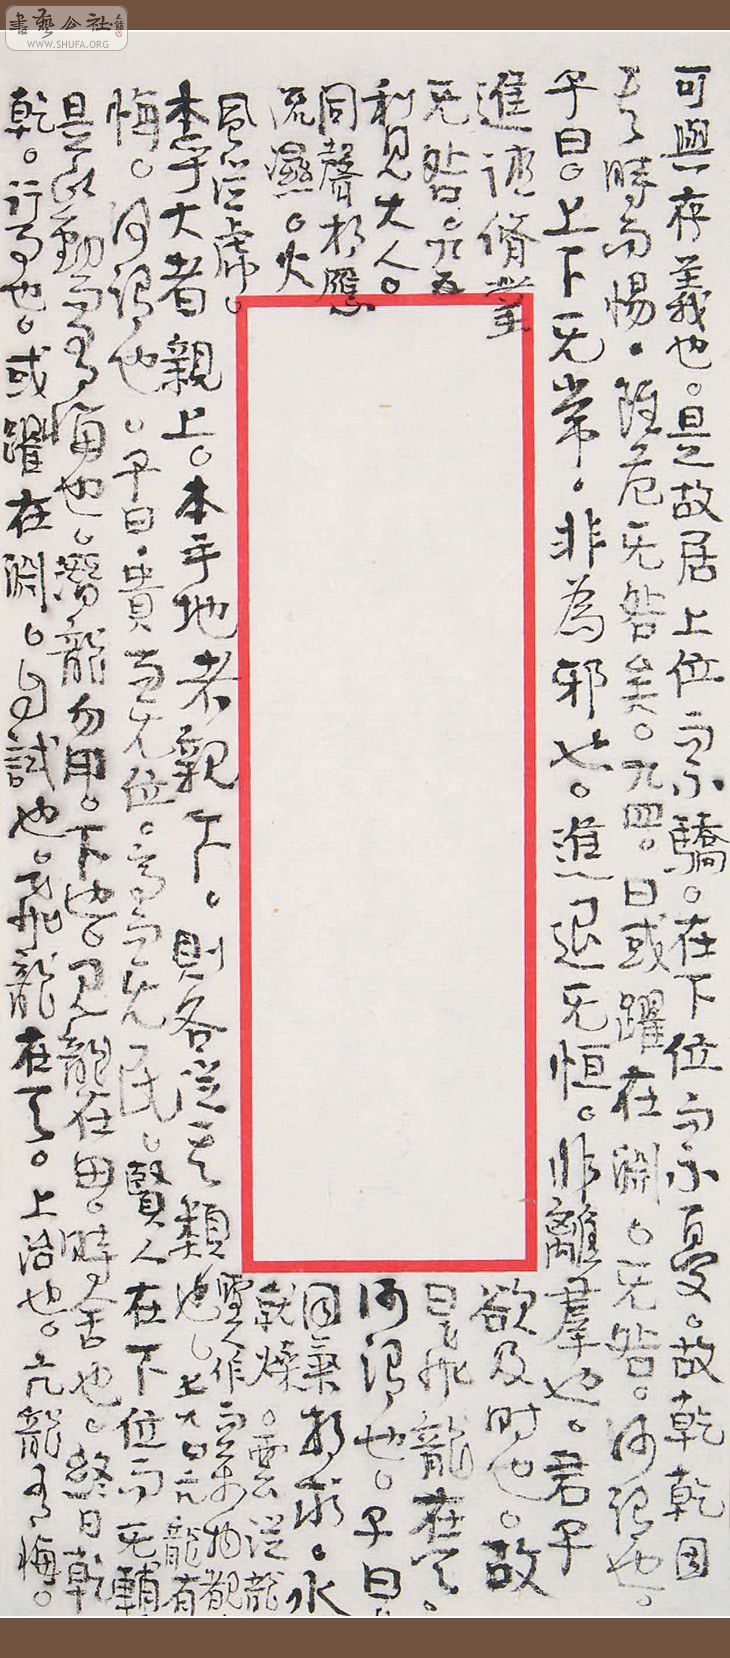 書藝公社
WWW.SHUFA.ORG
可與存義也。是故居上位而不驕。在下位而不憂。故乾乾因
其時而惕。雖危无咎矣。九四。曰或躍在淵。无咎。何謂也。
子曰。上下无常。非為邪也。進退无恒。非離羣也。君子
進德脩業欲及時也。故
无咎。九五曰飛龍在天。
利見大人。何謂也。子曰。
同聲相應同氣相求。水
流濕。火就燥。雲從龍
風從虎。聖人作而萬物覩
本乎天者親上。本乎地者親下。則各從其類也。上九曰亢龍有
悔。何謂也。子曰。貴而无位。高而无民。賢人在下位而无輔
是以動而有悔也。潛龍勿用。下也。見龍在田。時舍也。終日乾
乾。行事也。或躍在淵。自試也。飛龍在天。上治也。亢龍有悔。